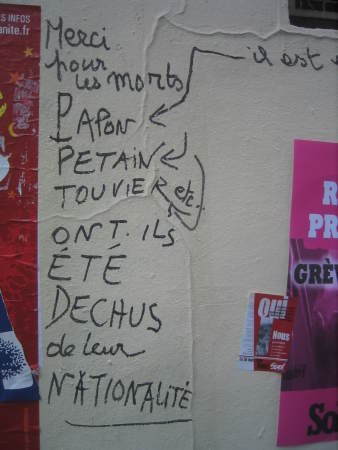 S INFOS
anite.fr
Merci
pour
les morts
il est
PAPON
PETAIN
TOUVIER etc.
ONT-ILS
ÉTÉ
DECHUS
de leur
NATIONALITÉ
R
PR
GRÈV
QUI
NOUS
So